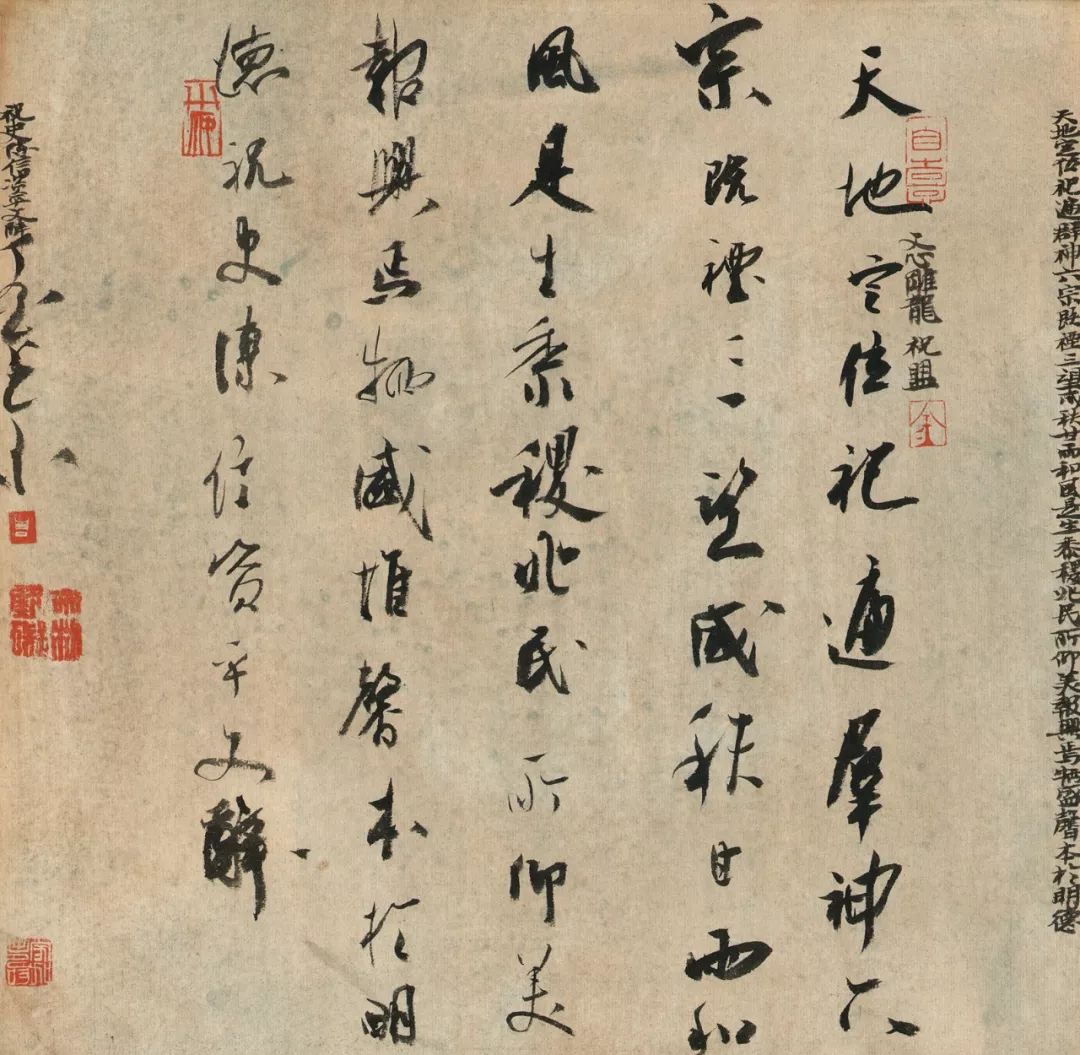 天地定位祀遍群神六宗既禋三望咸秩甘雨和風是生黍稷兆民所仰美報興焉牺盛馨本於明德
文心雕龍祝盟
天地定位祀遍羣神六
宗既禋三望咸秩甘雨和
風是生黍稷兆民所仰美
報興焉牺盛惟馨本於明
德祝史陳信資乎文辭
祝史陳信資乎文辭